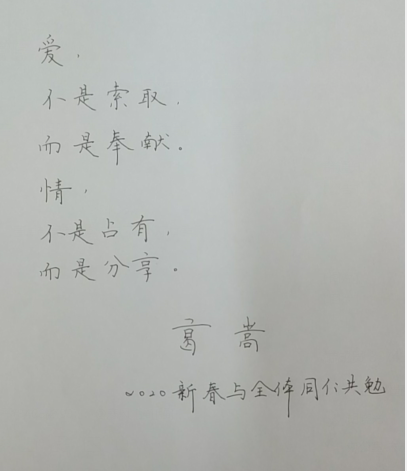 爱，
不是索取，
而是奉献。
情，
不是占有，
而是分享。
葛嵩
2020新春与全体同仁共勉